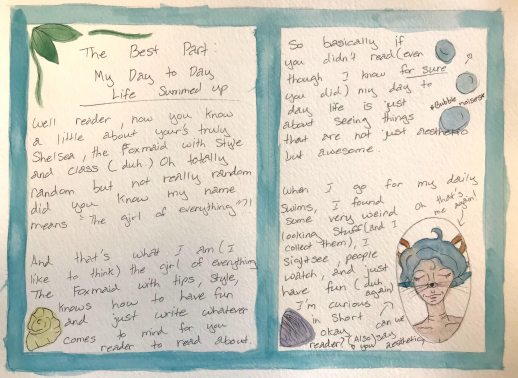 The Best Part:
My Day to Day
Life Summed up
Well reader, now you know
a little about your's truly
Shelsea, the Foxmaid with Style
and class (duh.) Oh totally
random but not really random
did you know my name
means "The girl of everything"?!
And that's what I am (I
like to think) the girl of everything
The Foxmaid with tips, style,
knows how to have fun
and just write whatever
comes to mind for you
reader to read about.
So basically if
you didn't read (even
though I know for sure
you did) my day to
day life is just
about seeing things
that are not just aesthetic
but awesome.
*Bubble noises*
When I go for my daily
swims, I found
some very weird
looking stuff (and I
collect them), I
sightsee, people
watch, and just
have fun (duh,
again)
I'm curious
in short
okay
reader? (Also)
Oh that's
me again!
can we
say
aesthetic